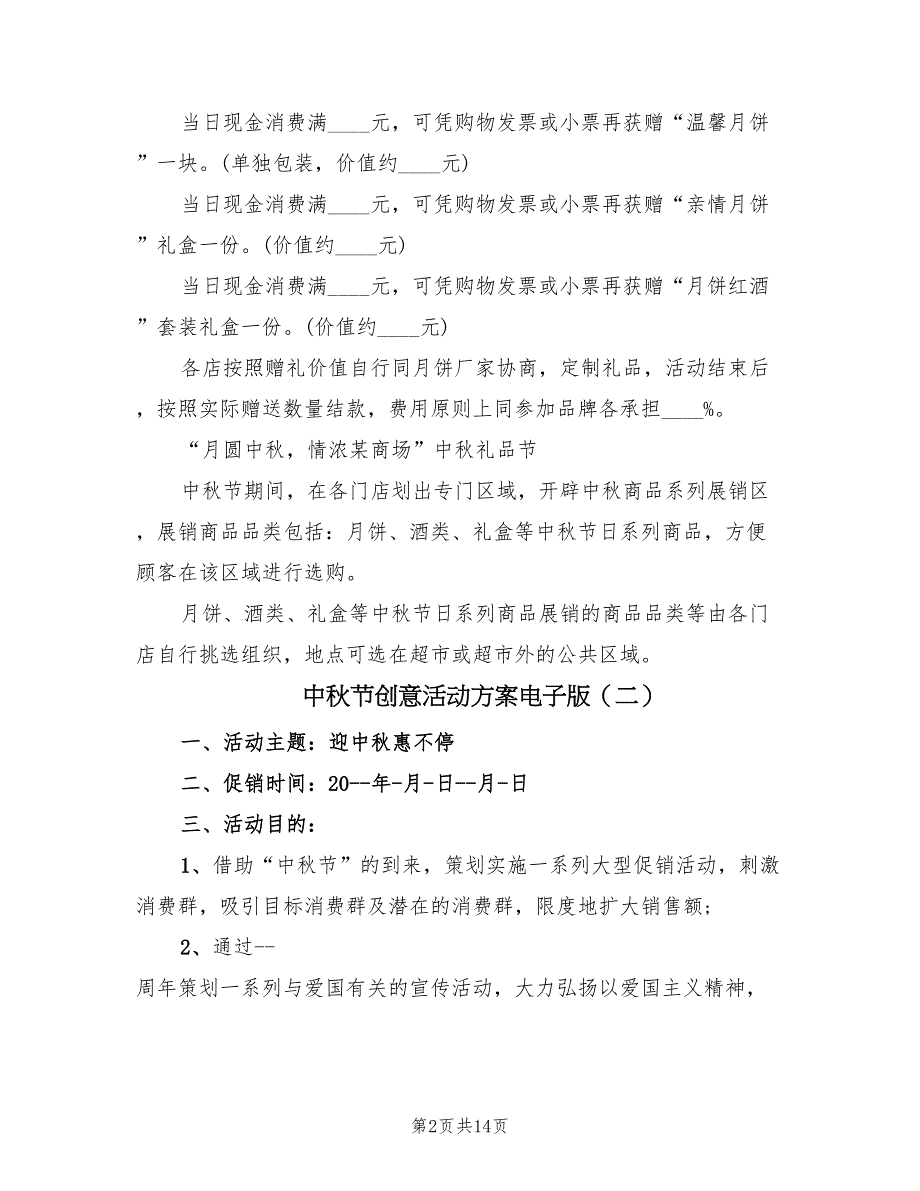 当日现金消费满____元，可凭购物发票或小票再获赠“温馨月饼
”一块。(单独包装，价值约____元)
当日现金消费满____元，可凭购物发票或小票再获赠“亲情月饼
”礼盒一份。(价值约____元)
当日现金消费满____元，可凭购物发票或小票再获赠“月饼红酒
”套装礼盒一份。(价值约____元)
各店按照赠礼价值自行同月饼厂家协商，定制礼品，活动结束后
，按照实际赠送数量结款，费用原则上同参加品牌各承担____%。
“月圆中秋，情浓某商场”中秋礼品节
中秋节期间，在各门店划出专门区域，开辟中秋商品系列展销区
，展销商品品类包括：月饼、酒类、礼盒等中秋节日系列商品，方便
顾客在该区域进行选购。
月饼、酒类、礼盒等中秋节日系列商品展销的商品品类等由各门
店自行挑选组织，地点可选在超市或超市外的公共区域。
中秋节创意活动方案电子版（二）
一、活动主题：迎中秋惠不停
二、促销时间：20--年-月-日--月-日
三、活动目的：
1、借助“中秋节”的到来，策划实施一系列大型促销活动，刺激
消费群，吸引目标消费群及潜在的消费群，限度地扩大销售额;
2、通过--
周年策划一系列与爱国有关的宣传活动，大力弘扬以爱国主义精神，
第2页共14页